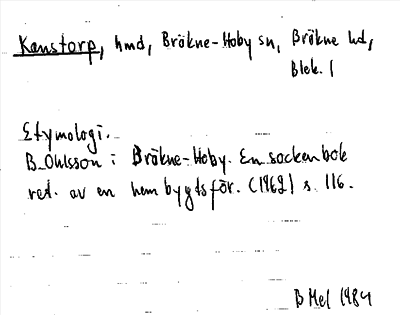 Kanstorp, hmd, Bräkne-Hoby sn, Bräkne hd,
Blek. l
Etymologi.
B. Ohlsson i Bräkne-Hoby. En sockenbok
red. av en hembygdsför. (1962) s. 116.
B Mel 1984